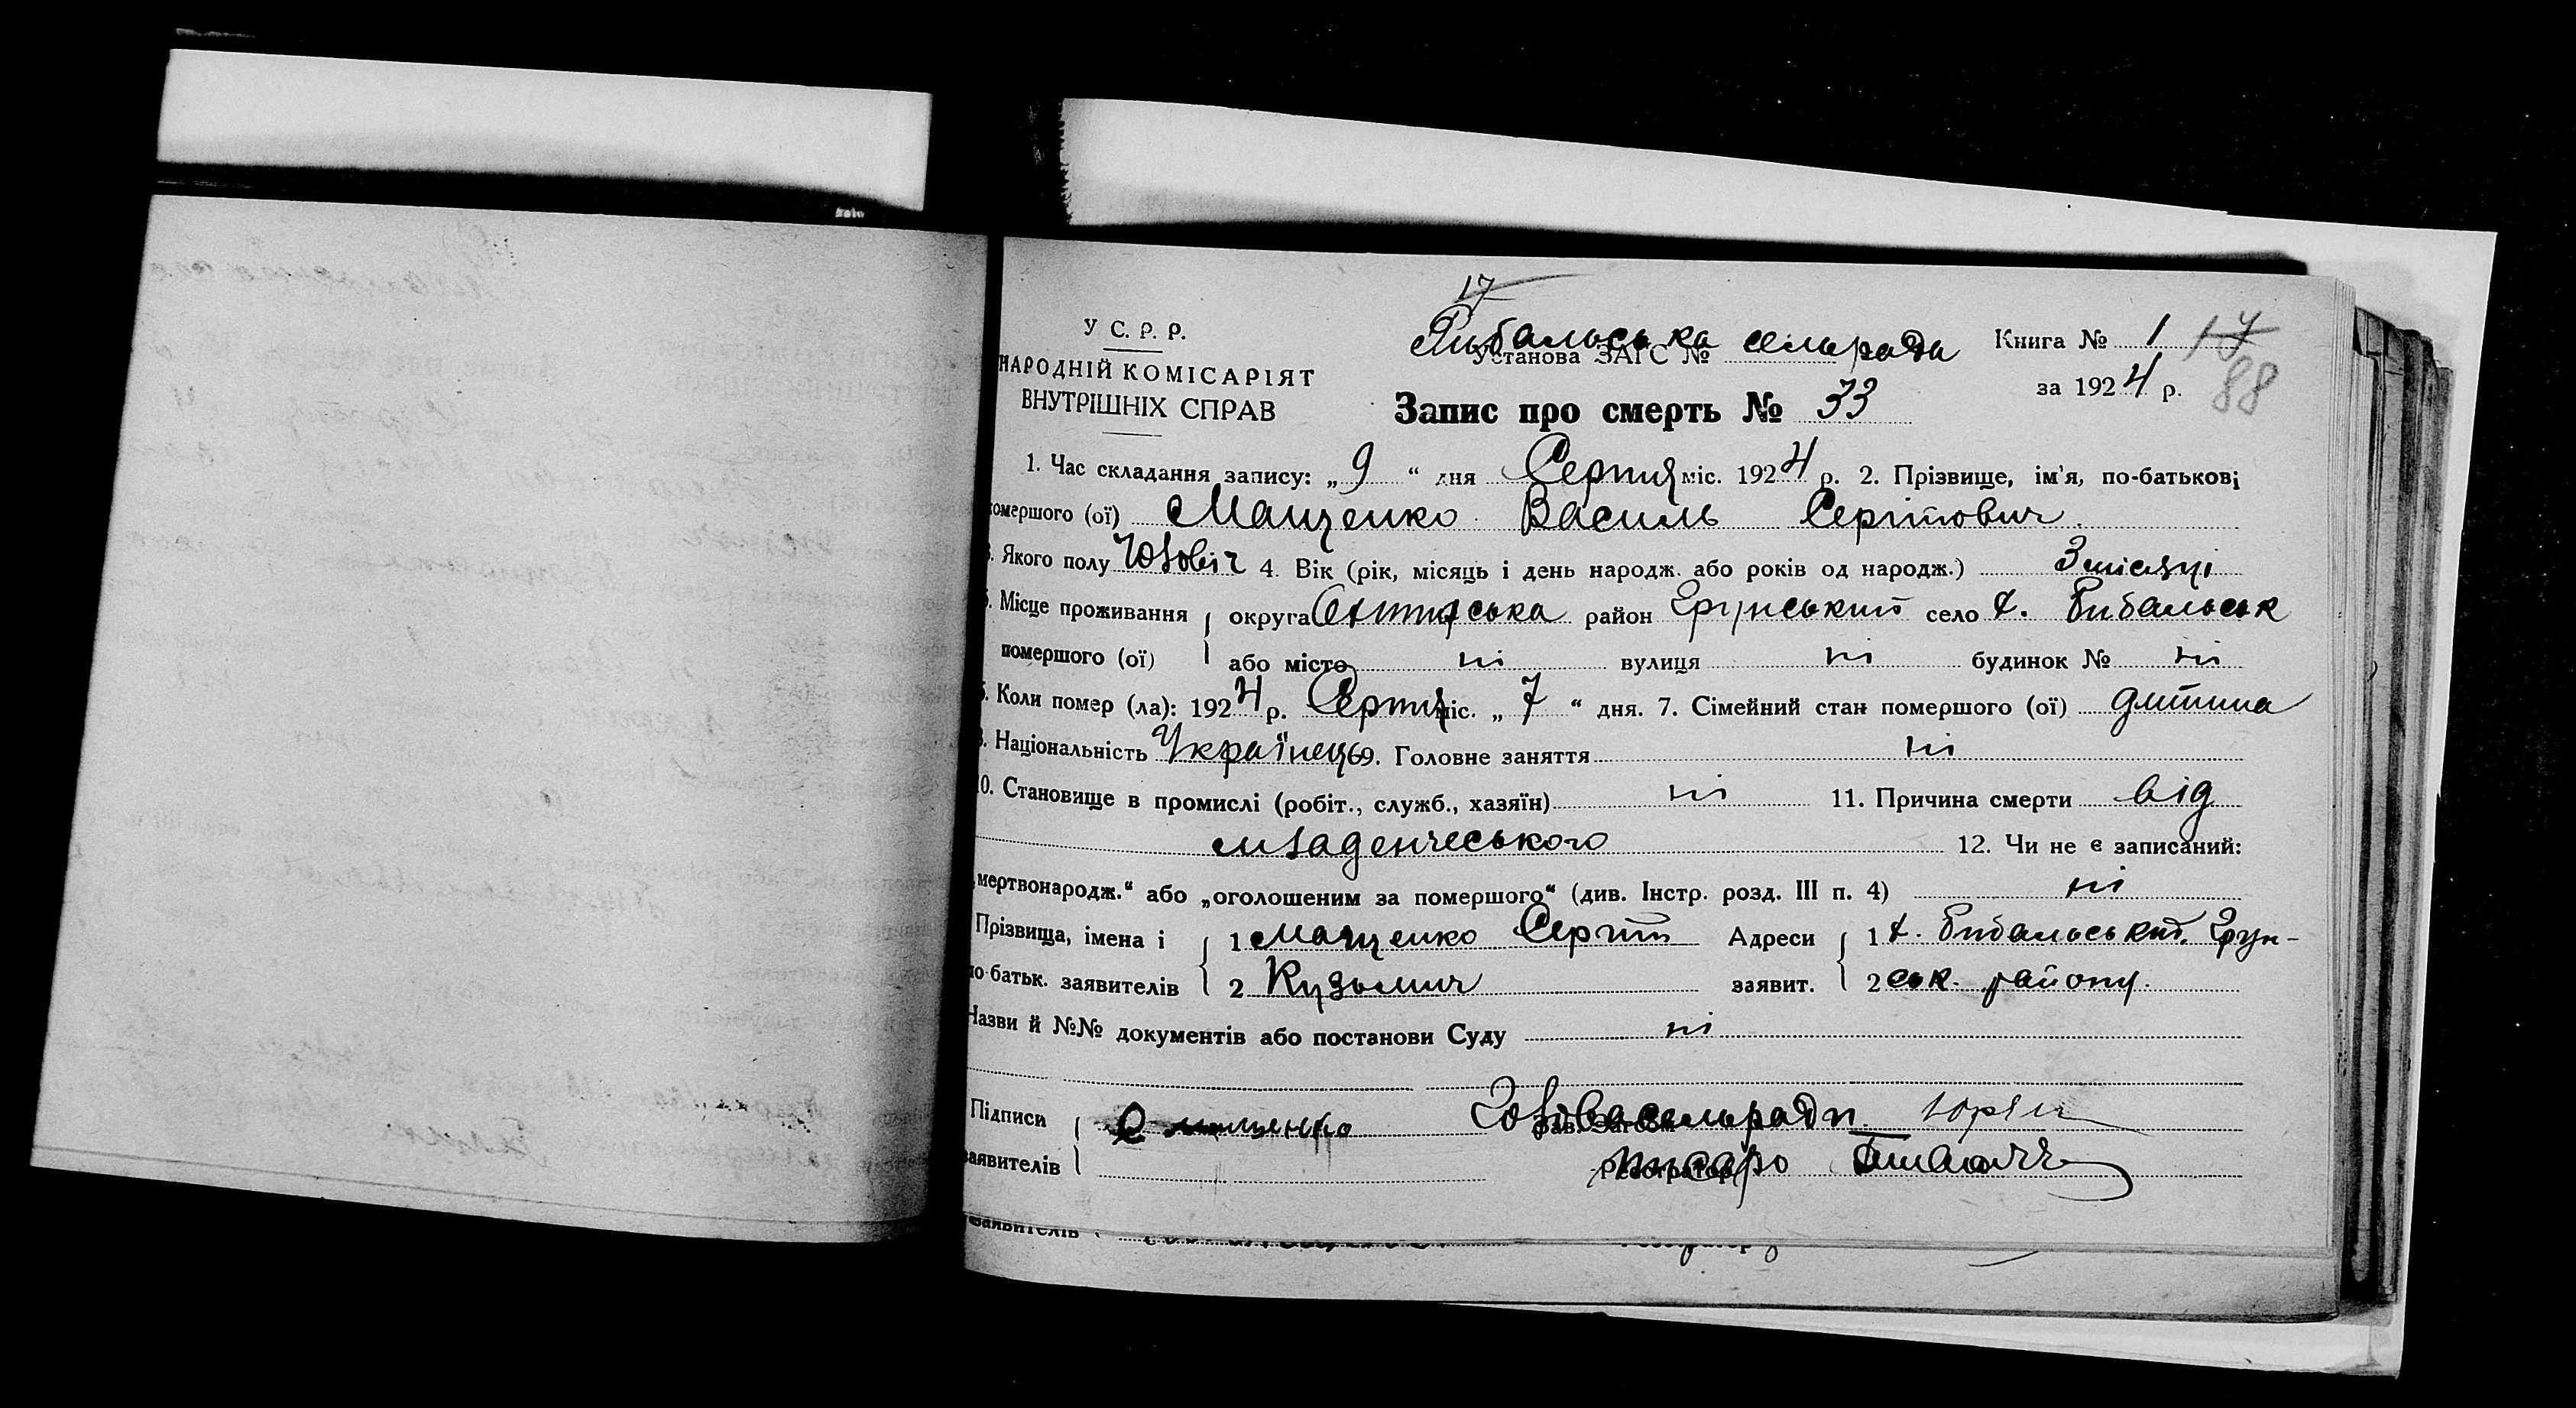 17
Рибальська сільрада
У С. Р. Р.
Установа ЗАГС №
Книга № 1
17
НАРОДНІЙ КОМІСАРІЯТ
за 1924 р.
88
ВНУТРІШНІХ СПРАВ
Запис про смерть № 33
1. Час складання запису: „ 9 “ дня Серпня міс. 1924 р. 2. Прізвище, ім'я, по-батькові
помершого (ої) Мащенко Василь Сергійович
3. Якого полу чоловіч 4. Вік (рік, місяць і день народж. або років од народж.) 3 місяці
5. Місце проживання округа Охтирська район Грунський село х. Рибальськ
помершого (ої) або місто ні вулиця ні будинок № ні
6. Коли помер (ла): 1924 р. Серпня міс. „ 7 “ дня. 7. Сімейний стан помершого (ої) дитина
8. Національність Українець 9. Головне заняття ні
10. Становище в промислі (робіт., служб., хазяїн) ні 11. Причина смерти від
младенчеського 12. Чи не є записаний:
„мертвонародж.“ або „оголошеним за помершого“ (див. Інстр. розд. III п. 4) ні
Прізвища, імена і 1 Мащенко Сергій Адреси 1 х. Рибальський. Грун-
по-батьк. заявителів 2 Кузьмич заявит. 2 ськ. району.
Назви й №№ документів або постанови Суду ні
Підписи С Мащенко Зав. Загсом Голова сільради
заявителів Реєстратор писарь
заявителів